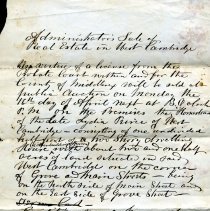 Administrators Sale of
Real Estate in West Cambridge
By virtue of a license from the
Probate Court within and for the
County of Middlesex will be sold at
Public Auction on Monday the
16th day of April next at 3 O'clock
P.M. on the Premises the Homestead
of the late Peirce of West
Cambridge consisting of one undivided
half of a two story dwelling
House with about two and one half
acres of land situated in said
West Cambridge on the corner
of Grove and Main Streets being
on the South side of Main Street and
on the East side of Grove Street